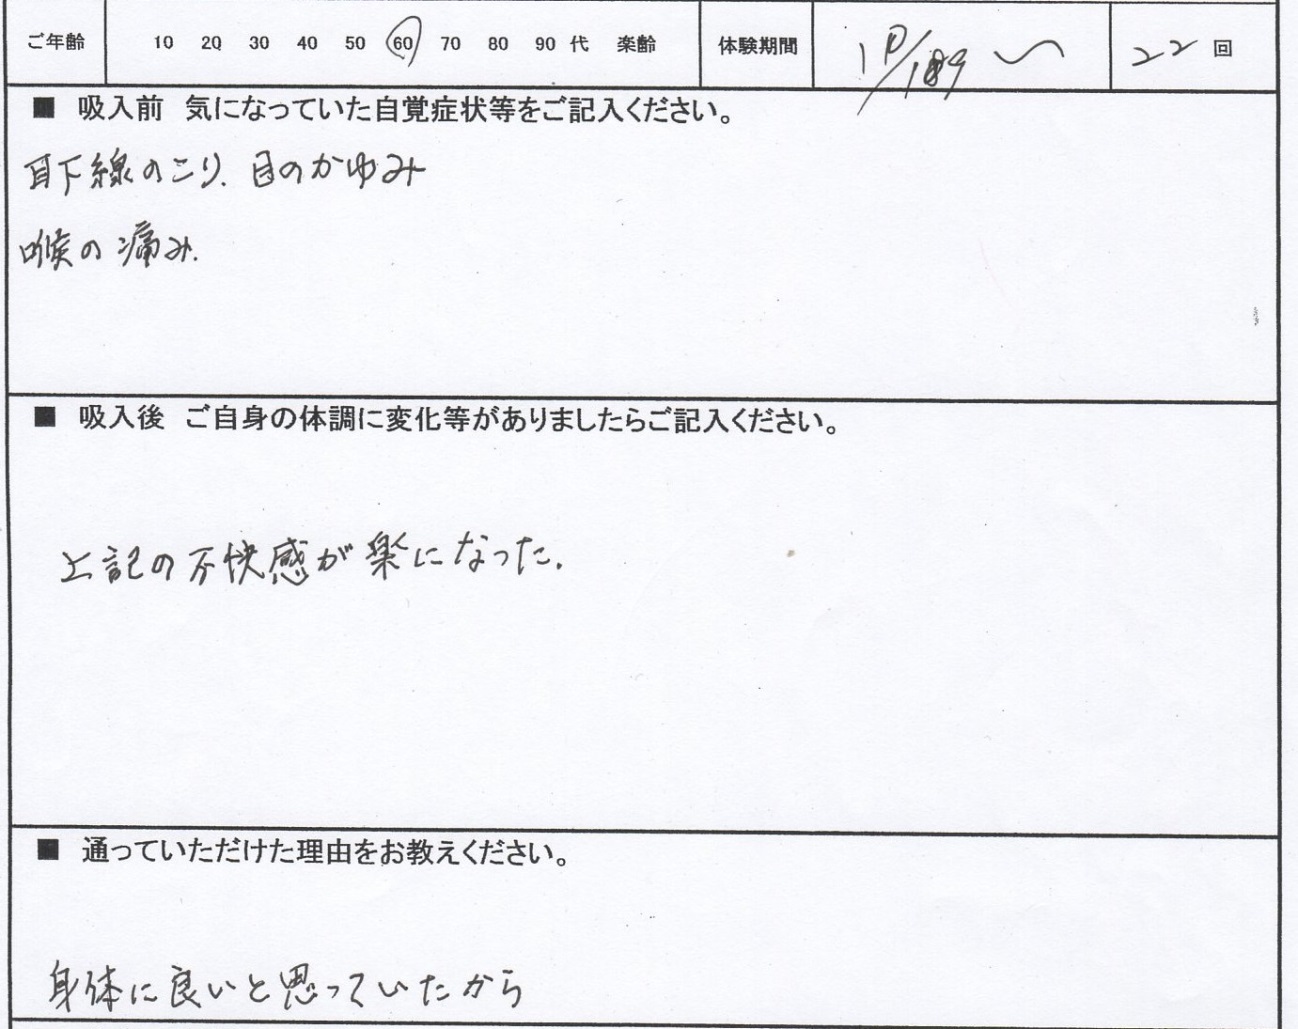 ご年齢 10 20 30 40 50 60 70 80 90 代 楽齢 体験期間 22 回
■ 吸入前 気になっていた自覚症状等をご記入ください。
耳下線のこり、目のかゆみ
喉の痛み.
■ 吸入後 ご自身の体調に変化等がありましたらご記入ください。
上記の不快感が楽になった.
■ 通っていただけた理由をお教えください。
身体に良いと思っていたから